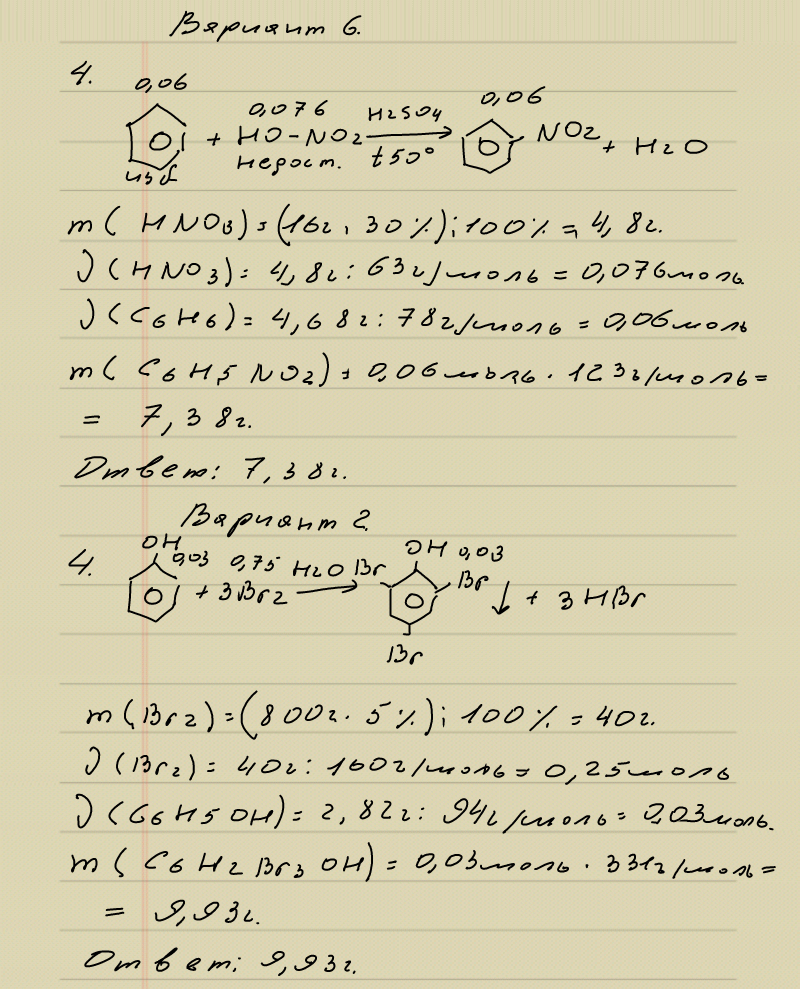 Вариант 6.
4.
0,06 0,076 H2SO4 0,06
+ HO-NO2 → NO2 + H2O
изб недост. t50°
m( HNO3)=(16г. 30%):100% = 4,8г.
ν(HNO3)= 4,8г:63г/моль = 0,076моль
ν(C6H6)= 4,68г:78г/моль = 0,06моль
m( C6H5NO2)= 0,06моль · 123г/моль=
= 7,38г.
Ответ: 7,38г.
Вариант 2.
4.
OH 0,03 0,75 H2O OH 0,03
+ 3Br2 → Br Br ↓ + 3HBr
Br
m(Br2)=(800г· 5%):100% = 40г.
ν(Br2)= 40г:160г/моль= 0,25моль
ν(C6H5OH)= 2,82г: 94г/моль= 0,03моль.
m( C6H2Br3OH)= 0,03моль · 331г/моль=
= 9,93г.
Ответ: 9,93г.